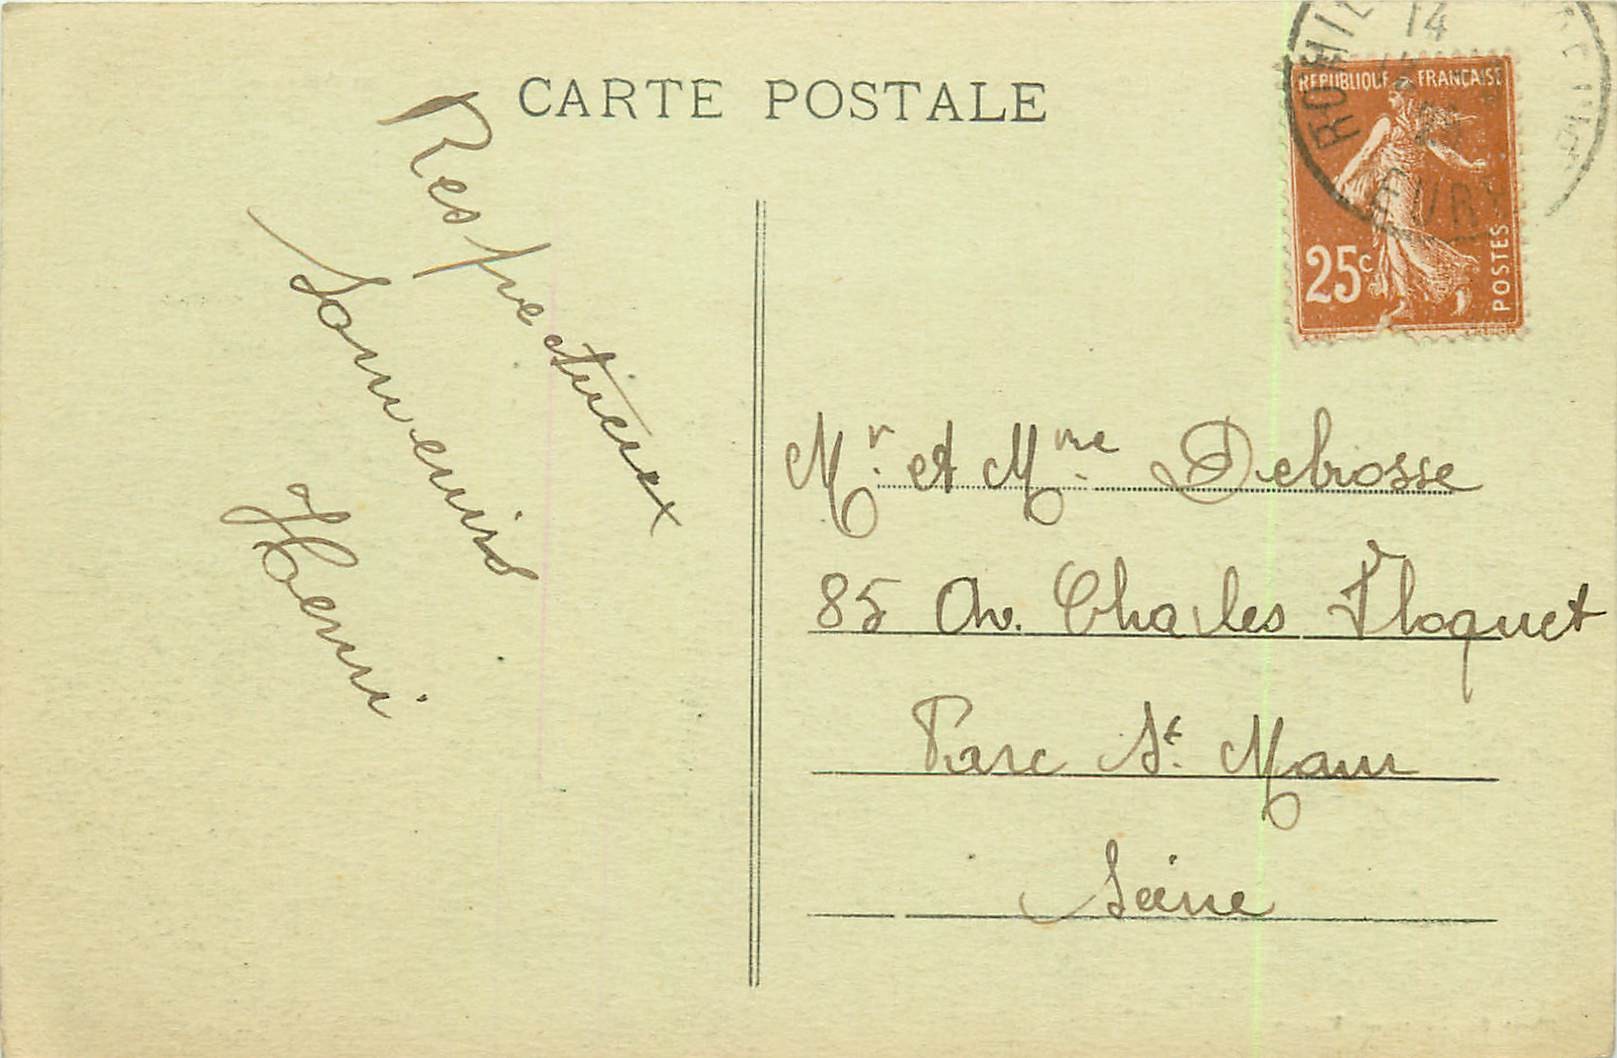 CARTE POSTALE
Respectueux
Souvenirs
Henri
REPUBLIQUE FRANÇAISE
25c
POSTES
14
EURE
Mr. et Mme. Debrosse
85 Av. Charles Floquet
Parc St. Maur
Seine